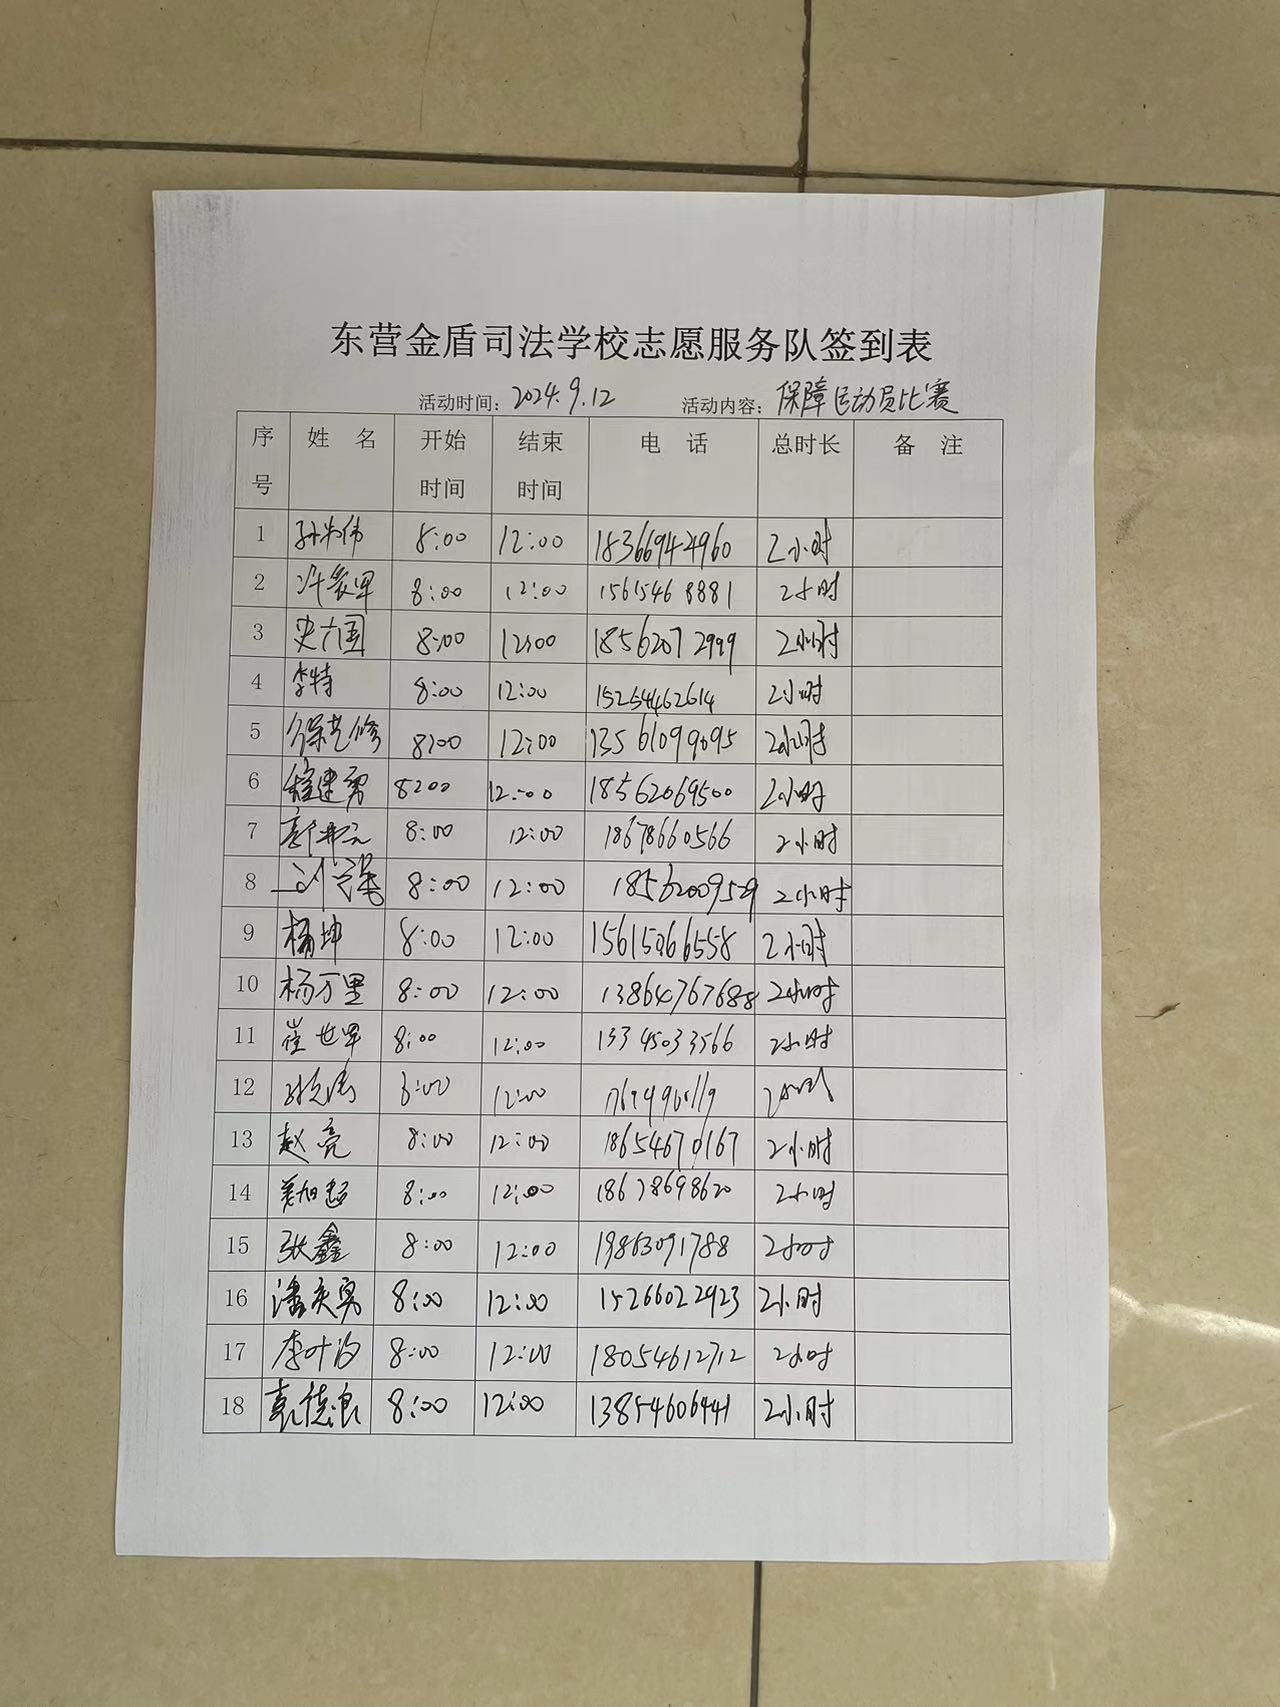 东营金盾司法学校志愿服务队签到表
活动时间：2024.9.12 活动内容：保障运动员比赛
序号 姓名 开始时间 结束时间 电话 总时长 备注
1 8:00 12:00 18366944960 2小时
2 8:00 12:00 15615468881 2小时
3 史六国 8:00 12:00 18562072999 2小时
4 李特 8:00 12:00 15254462614 2小时
5 徐艺修 8:00 12:00 13561099095 2小时
6 程建勇 8:00 12:00 18562069500 2小时
7 8:00 12:00 18678660566 2小时
8 刘强 8:00 12:00 18562009529 2小时
9 杨坤 8:00 12:00 15615066558 2小时
10 杨万里 8:00 12:00 13864767688 2小时
11 崔世军 8:00 12:00 13345033566 2小时
12 8:00 12:00 2小时
13 赵亮 8:00 12:00 18654670167 2小时
14 8:00 12:00 18678698620 2小时
15 张鑫 8:00 12:00 19863091788 2小时
16 潘庆勇 8:00 12:00 15266022923 2小时
17 李叶 8:00 12:00 18054612712 2小时
18 袁德浪 8:00 12:00 13854606441 2小时